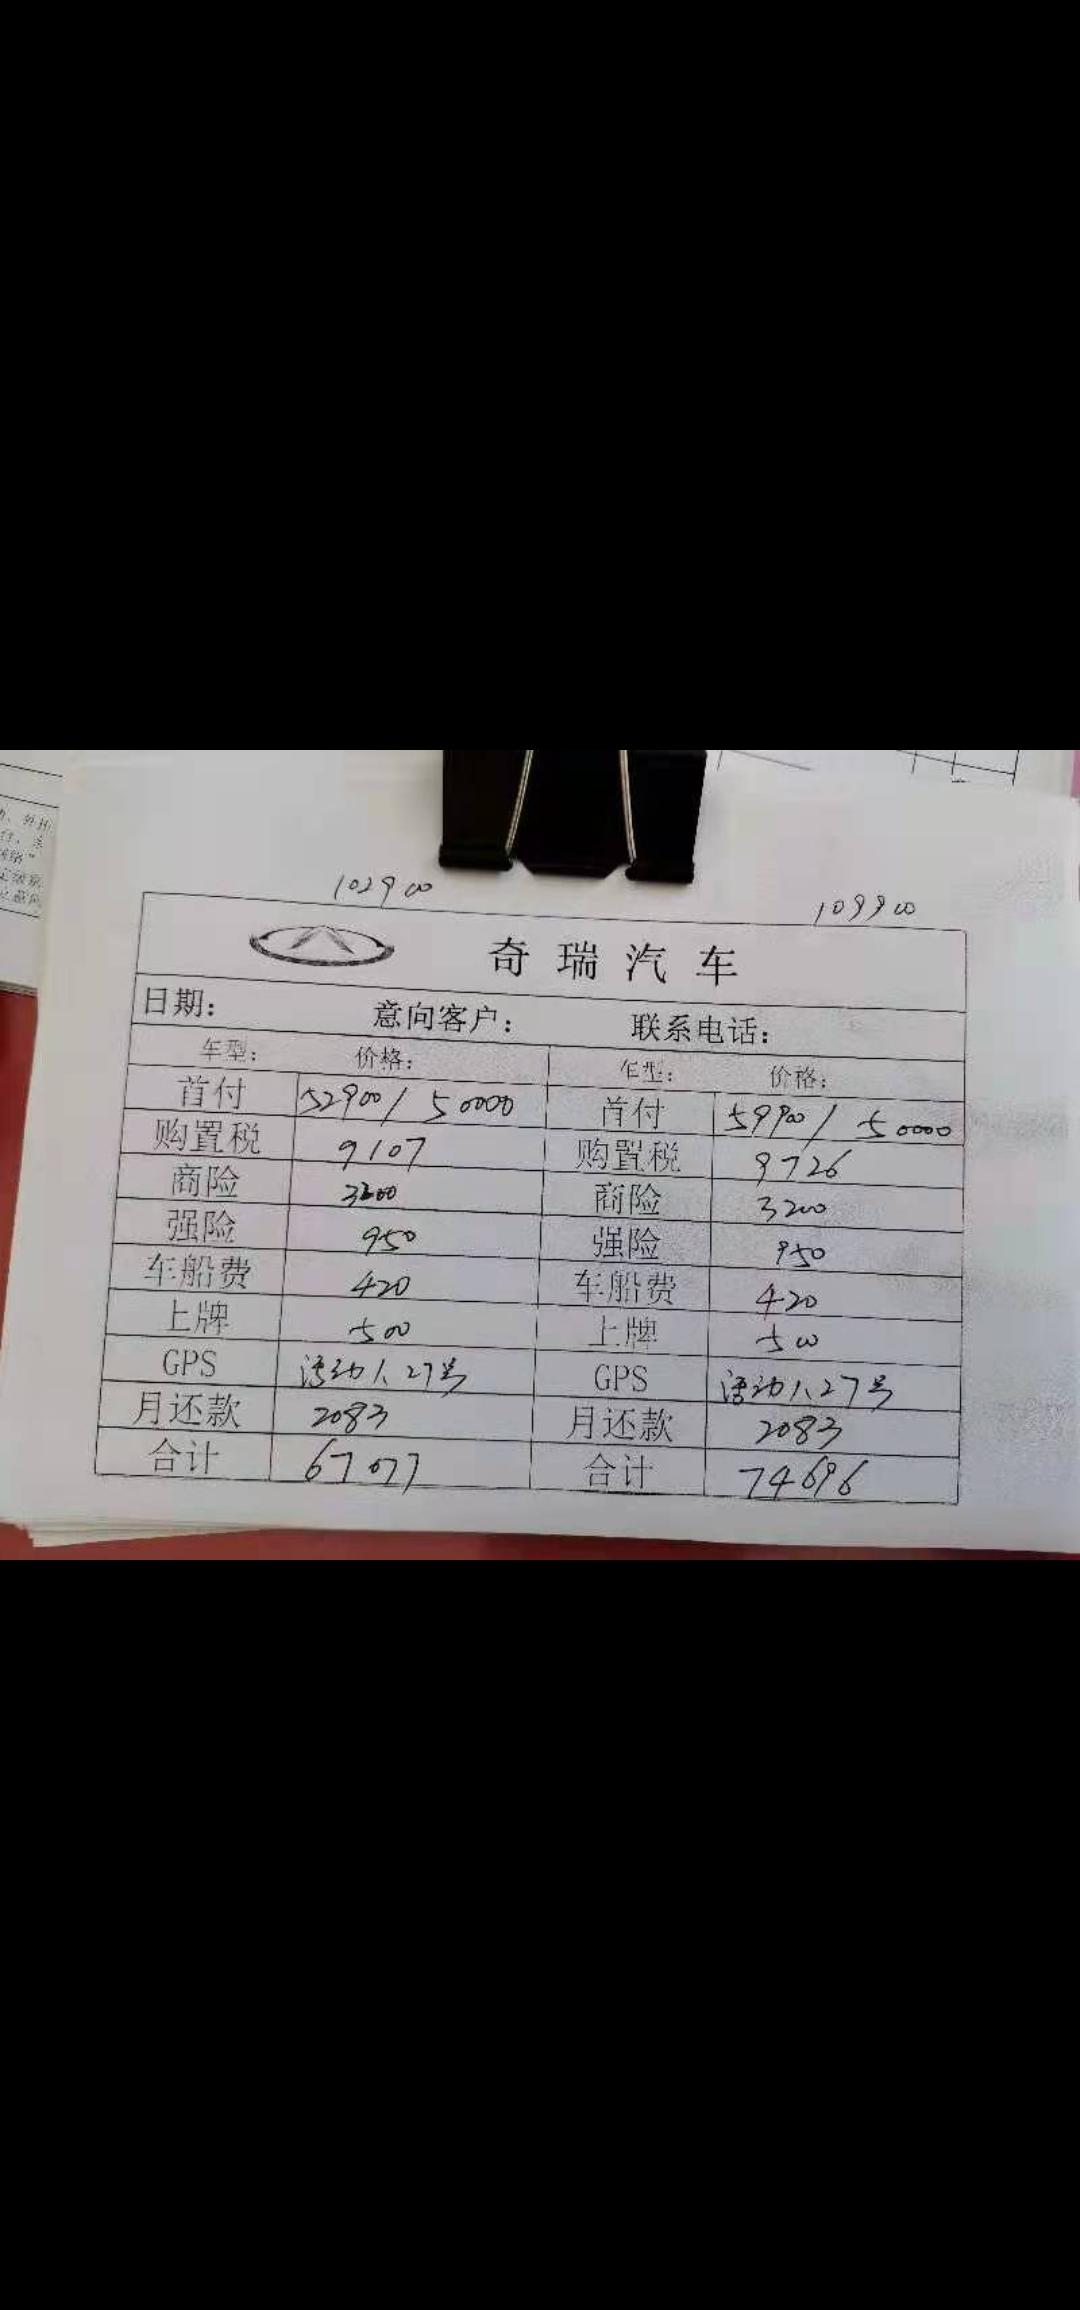 102900
109900
奇瑞汽车
日期： 意向客户： 联系电话：
车型： 价格： 车型： 价格：
首付 52900/50000 首付 59900/50000
购置税 9107 购置税 9726
商险 3200 商险 3200
强险 950 强险 950
车船费 420 车船费 420
上牌 500 上牌 500
GPS 活动1、27号 GPS 活动1、27号
月还款 2083 月还款 2083
合计 67077 合计 74696